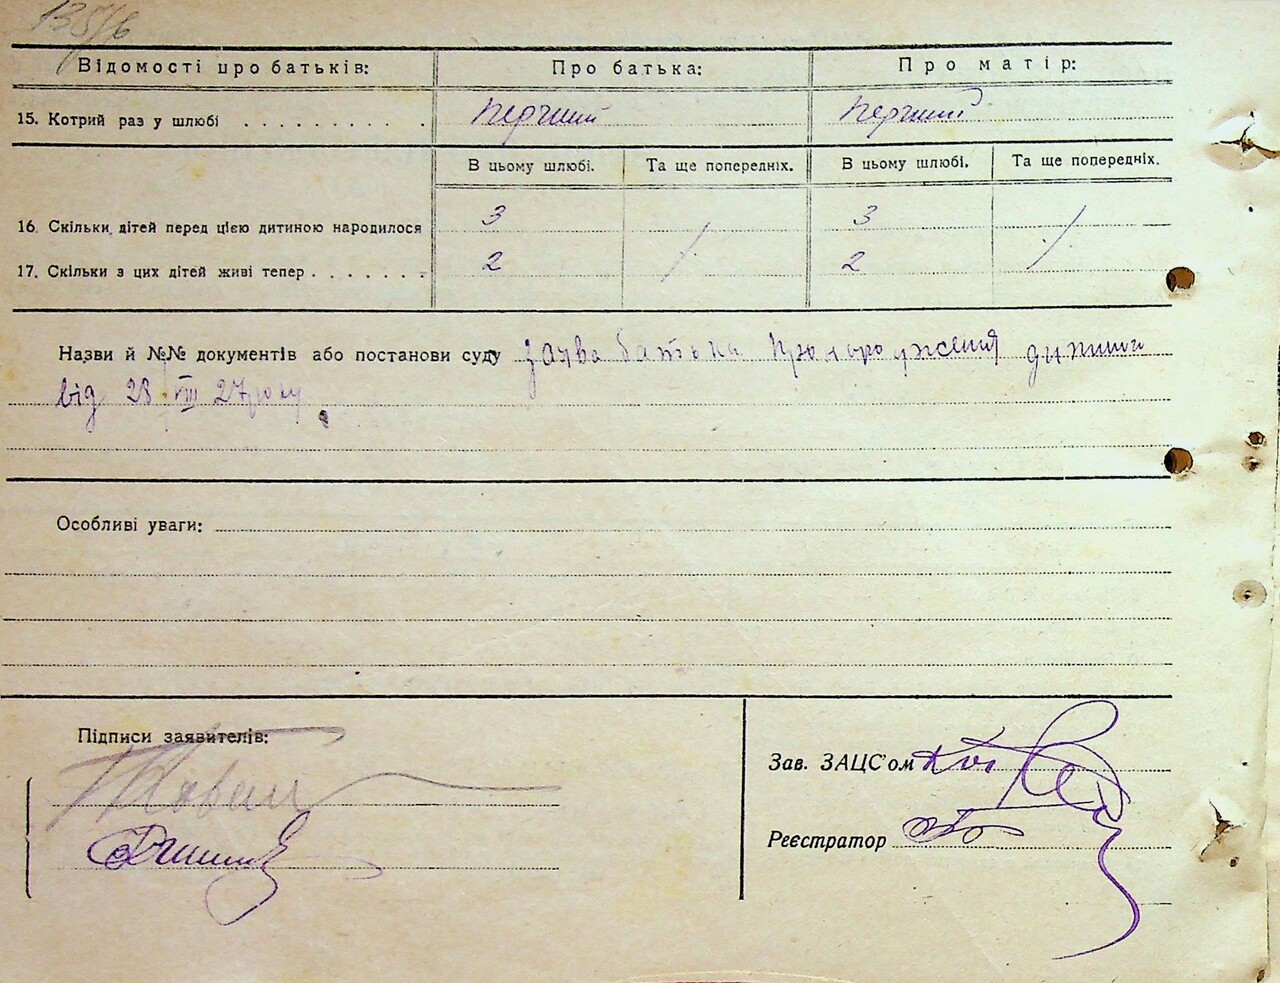 135/б
Відомості про батьків: Про батька: Про матір:
15. Котрий раз у шлюбі . . . . . . . . . . перший перший
В цьому шлюбі. Та ще попередніх. В цьому шлюбі. Та ще попередніх.
16. Скільки дітей перед цією дитиною народилося 3 / 3 /
17. Скільки з цих дітей живі тепер . . . . . . . 2 2
Назви й №№ документів або постанови суду заява батька про народження дитини
від 28 VIII 27 року
Особливі уваги:
Підписи заявителів:
Зав. ЗАЦС'ом
Реєстратор